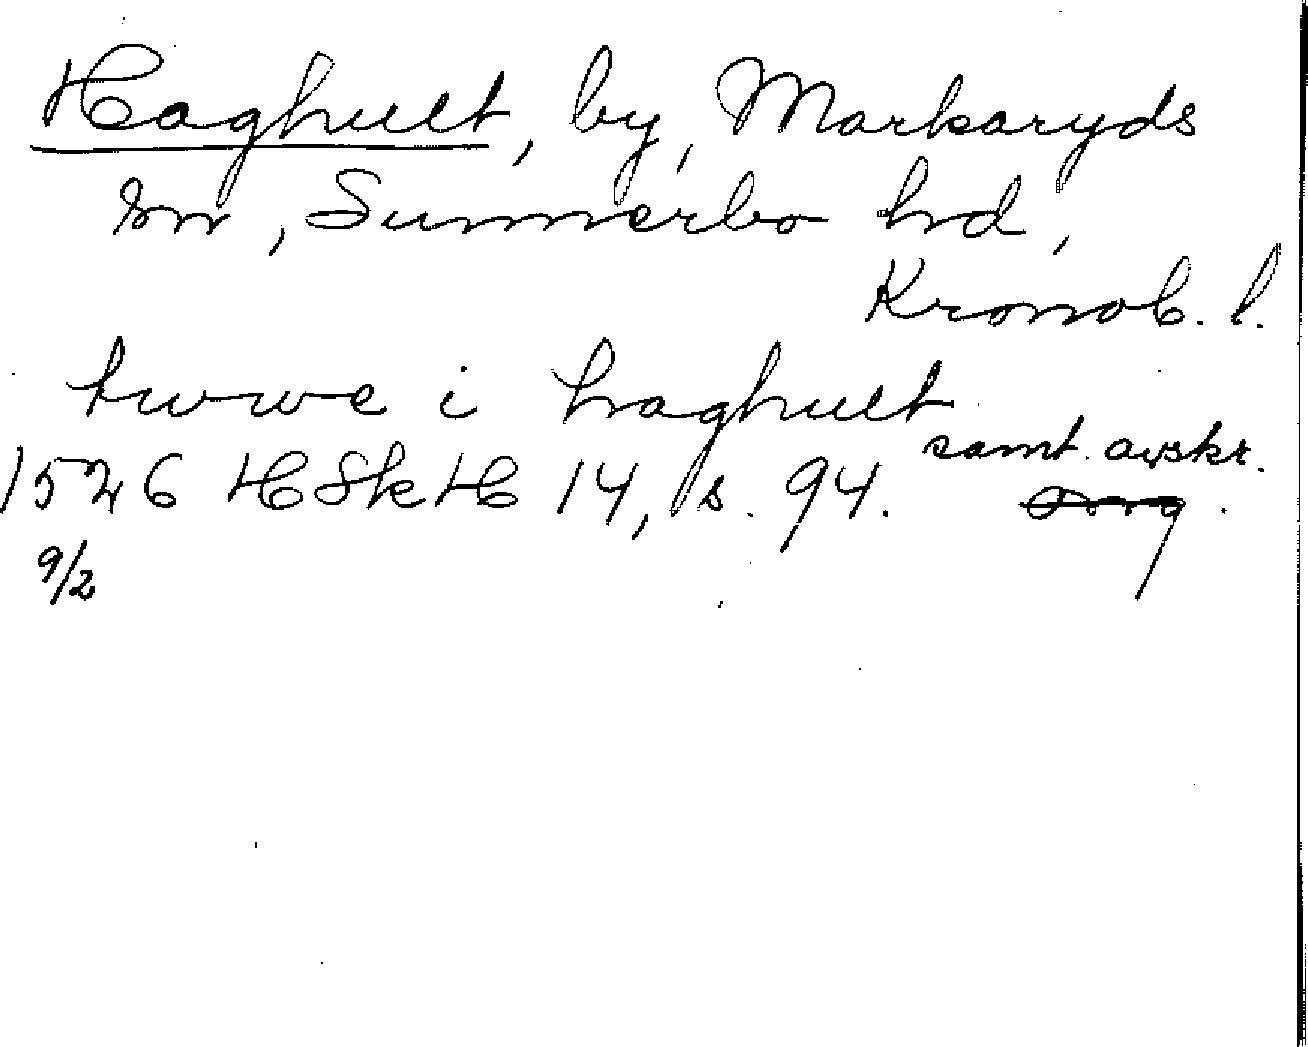 Haghult, by, Markaryds
sn, Sunnerbo hrd,
Kronob. l.
twwe i haghult
samt. avskr.
1526 HSkH 14, s. 94.
9/2